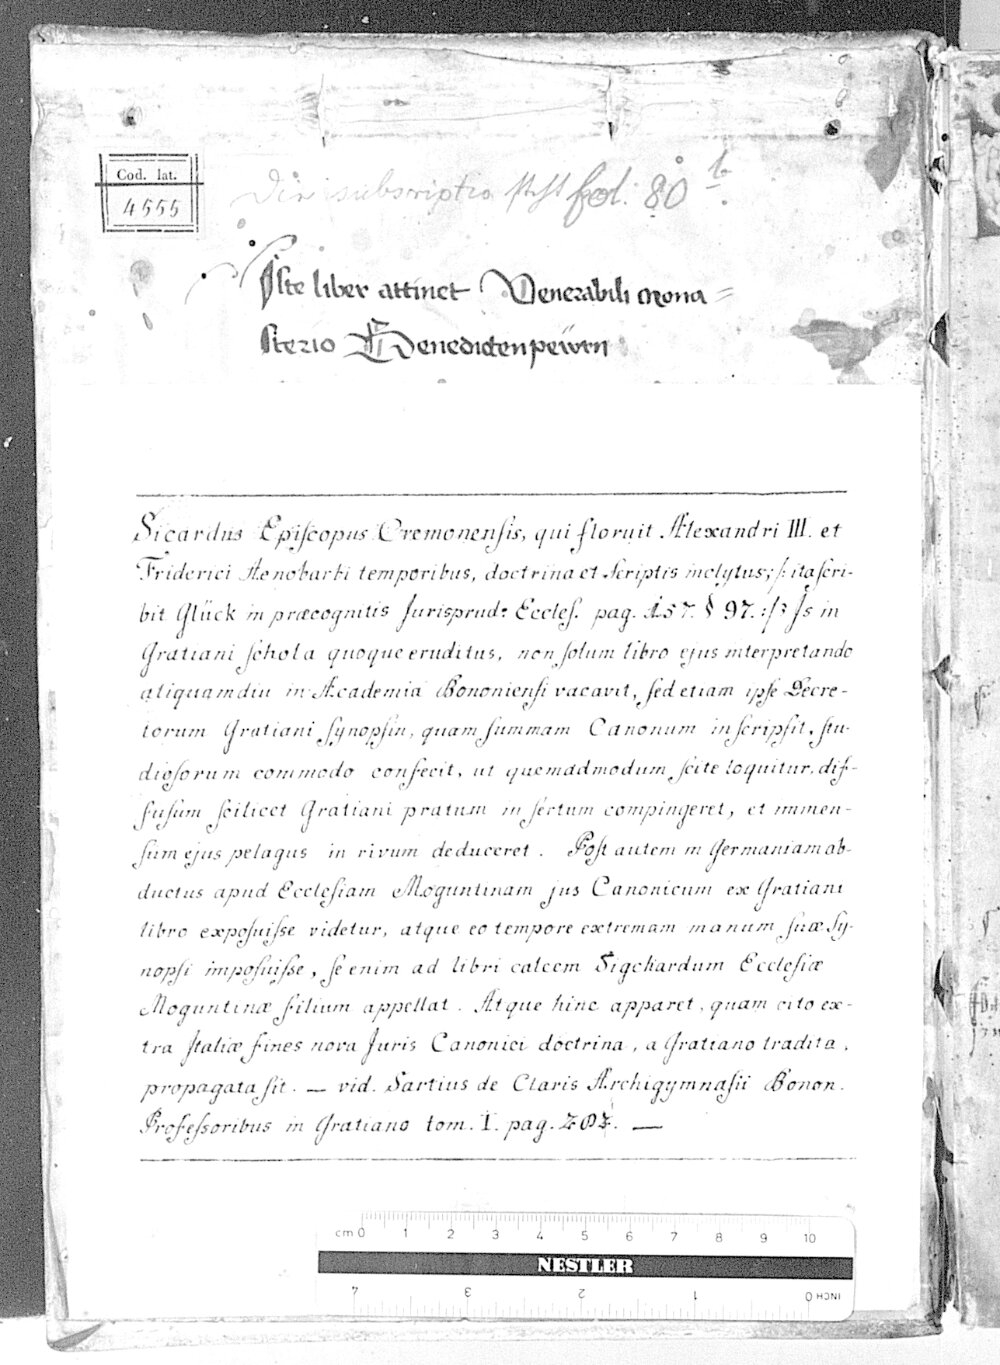 Cod. lat.
4555
Die subscriptio steht fol. 80 b.
Iste liber attinet Venerabili Mona=
sterio Benedictenpeẅrn
Sicardus Episcopus Cremonensis, qui floruit Alexandri III. et
Friderici Aenobarbi temporibus, doctrina et scriptis inclytus; /: ita scri-
bit Glück in præcognitis Jurisprud: Eccles. pag. 157. § 97. :/ Is in
Gratiani schola quoque eruditus, non solum libro ejus interpretando
aliquamdiu in Academia Bononiensi vacavit, sed etiam ipse Decre-
torum Gratiani synopsin, quam summam Canonum inscripsit, stu-
diosorum commodo confecit, ut quemadmodum scite loquitur, dif-
fusum scilicet Gratiani pratum in sertum compingeret, et immen-
sum ejus pelagus in rivum deduceret. Post autem in Germaniam ab-
ductus apud Ecclesiam Moguntinam jus Canonicum ex Gratiani
libro exposuisse videtur, atque eo tempore extremam manum suæ Sy-
nopsi imposuisse, se enim ad libri calcem Sigehardum Ecclesiæ
Moguntinæ filium appellat. Atque hinc apparet, quam cito ex-
tra Italiæ fines nova Juris Canonici doctrina, a Gratiano tradita,
propagata sit. — vid. Sartius de Claris Archigymnasii Bonon.
Professoribus in Gratiano tom. I. pag. —
cm 0 1 2 3 4 5 6 7 8 9 10
NESTLER
4 3 2 1 0 INCH